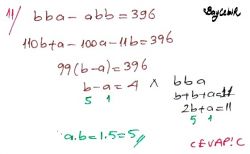 11) bba - abb = 396
BayÇebir
110b+a-100a-11b=396
99(b-a)=396
b-a=4 ∧ bba
5 1
b+b+a=11
2b+a=11
5 1
a.b=1.5=5
CEVAP: C